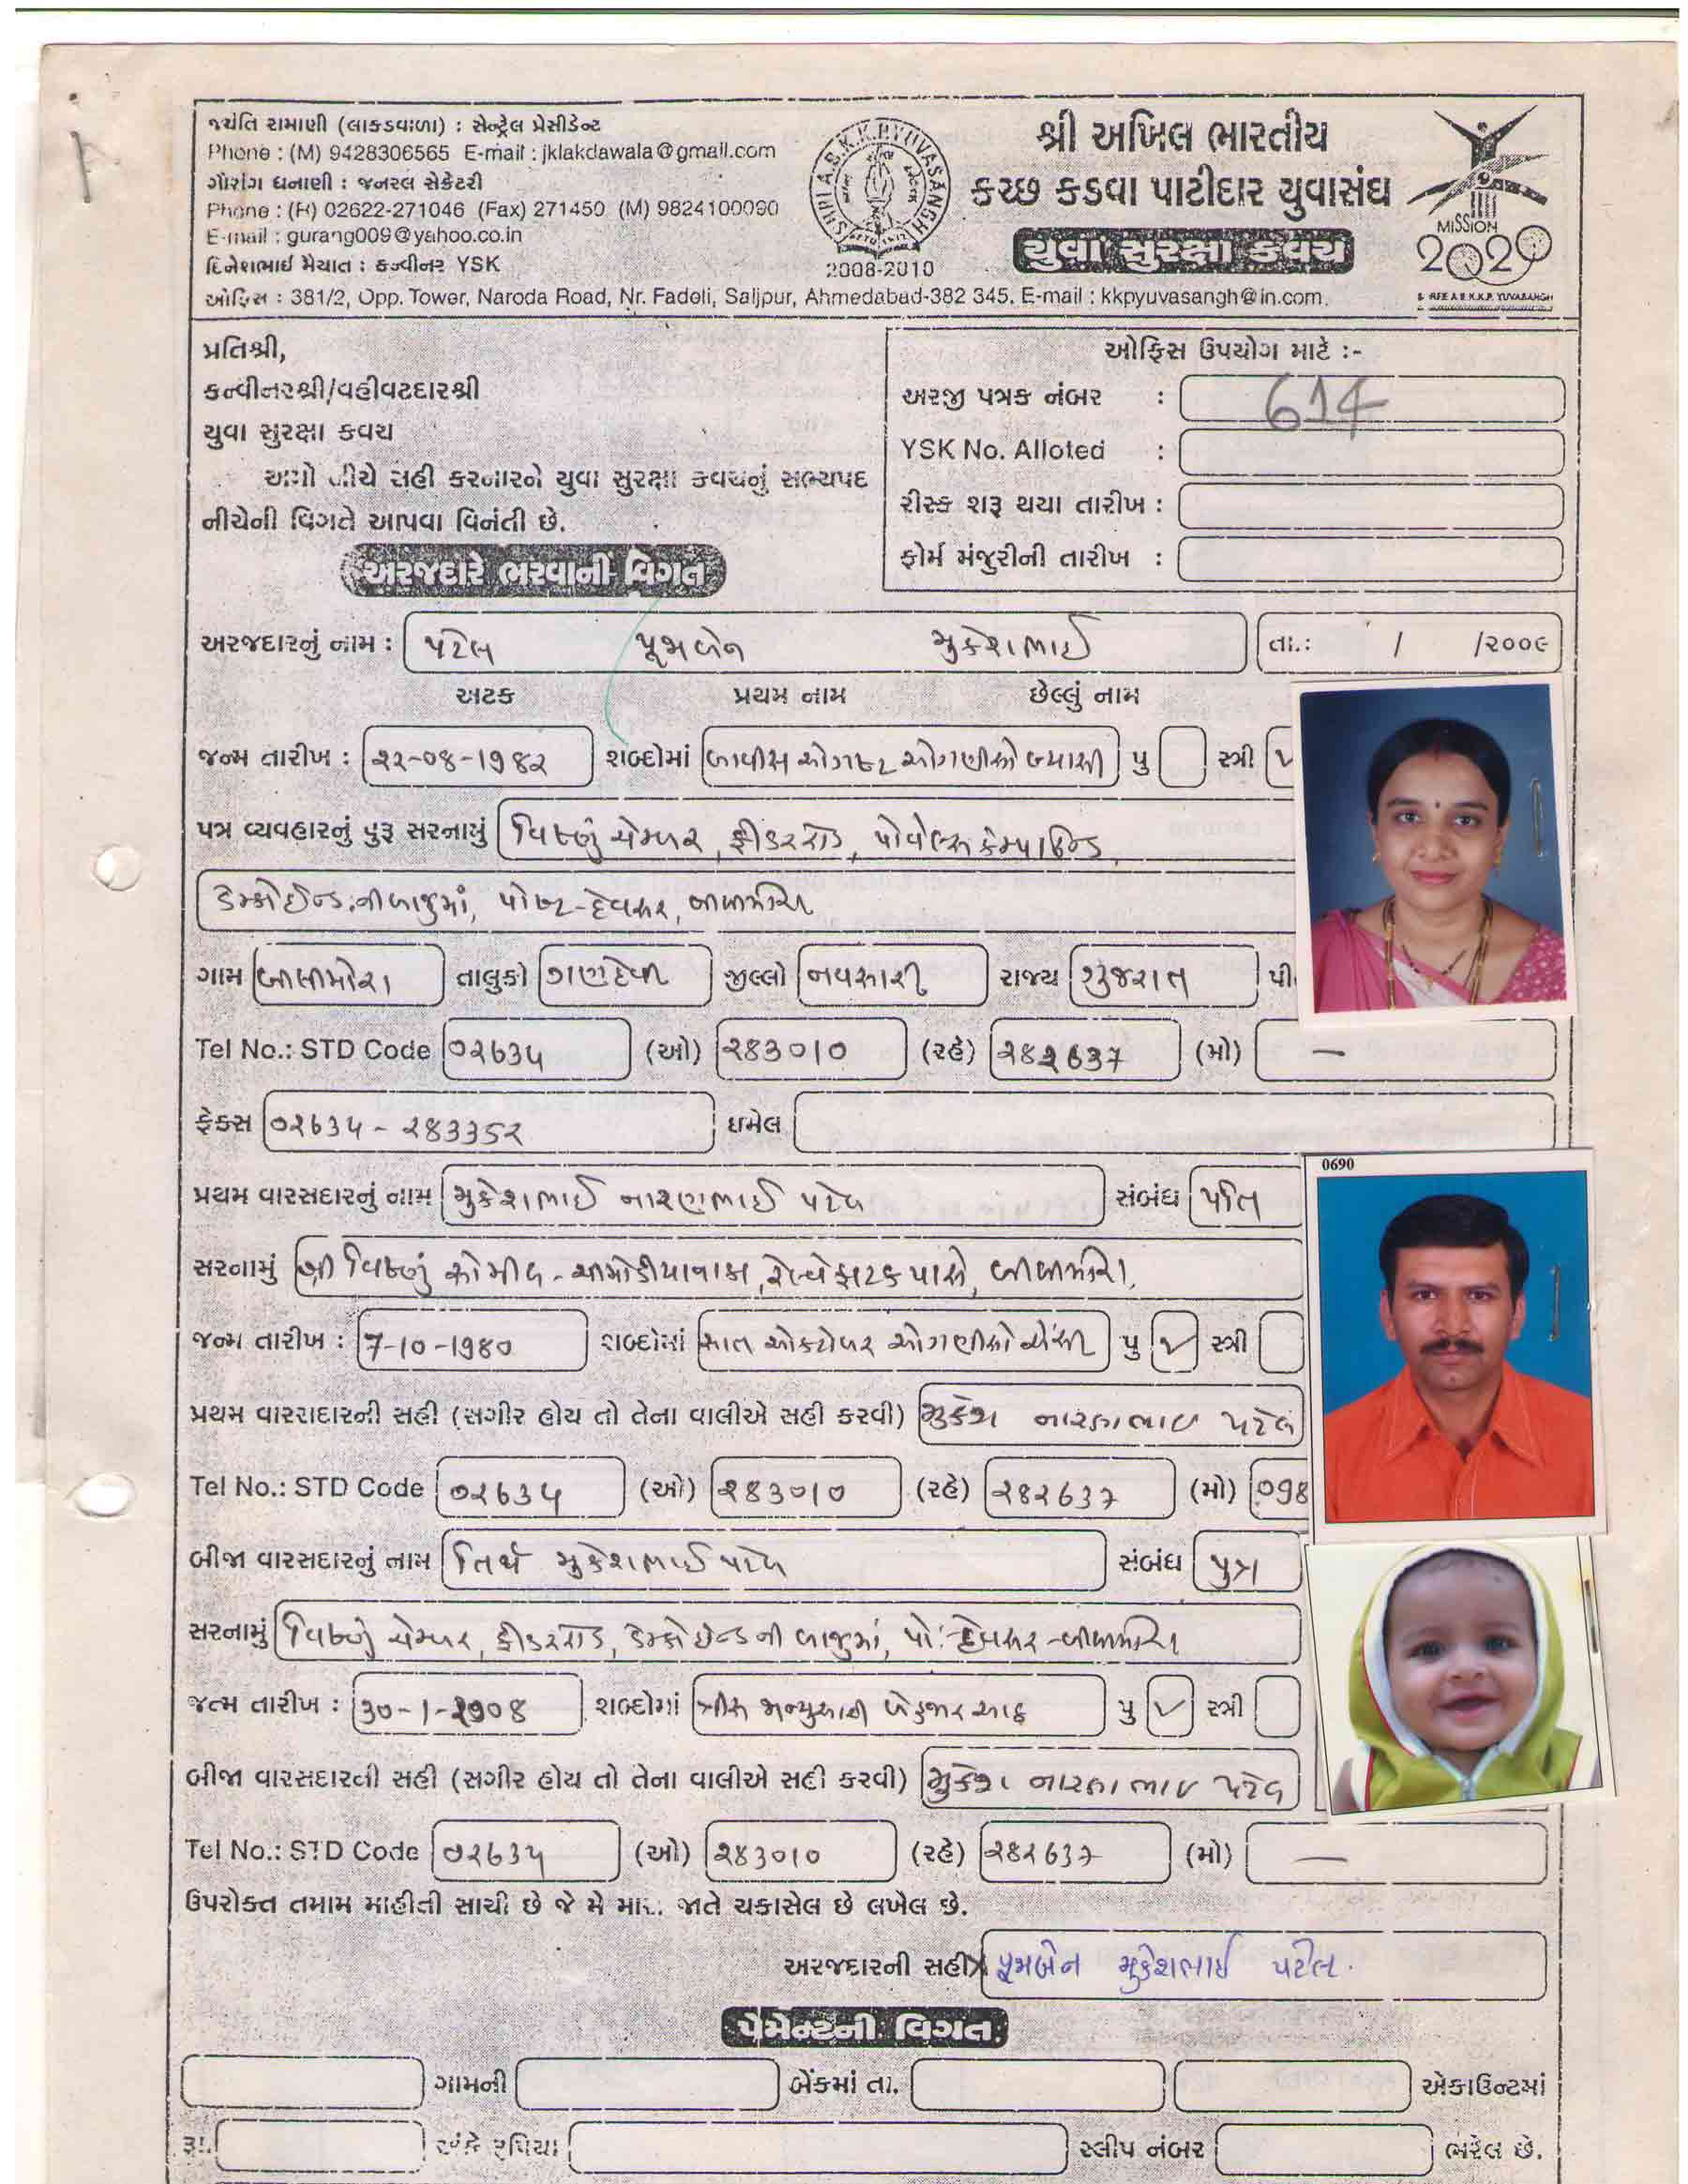 જયંતિ રામાણી (લાકડાવાળા) : સેન્ટ્રેલ પ્રેસીડેન્ટ
Phone : (M) 9428306565 E-mail : jklakdawala@gmail.com
ગૌરાંગ ધનાણી : જનરલ સેક્રેટરી
Phone : (R) 02622-271046 (Fax) 271450 (M) 9824100090
E-mail : gurang009@yahoo.co.in
દિનેશભાઈ મૈયાત : કન્વીનર YSK
ઓફિસ : 381/2, Opp. Tower, Naroda Road, Nr. Fadeli, Saijpur, Ahmedabad-382 345. E-mail : kkpyuvasangh@in.com.
SHRI A.B.K.K.P. YUVASANGH
2008-2010
શ્રી અખિલ ભારતીય
કચ્છ કડવા પાટીદાર યુવાસંઘ
યુવા સુરક્ષા કવચ
MISSION
2020
પ્રતિશ્રી,
કન્વીનરશ્રી/વહીવટદારશ્રી
યુવા સુરક્ષા કવચ
અમો નીચે સહી કરનારને યુવા સુરક્ષા કવચનું સભ્યપદ
નીચેની વિગતે આપવા વિનંતી છે.
ઓફિસ ઉપયોગ માટે :-
અરજી પત્રક નંબર : 614
YSK No. Alloted :
રીસ્ક શરૂ થયા તારીખ :
ફોર્મ મંજુરીની તારીખ :
અરજદારે ભરવાની વિગત
અરજદારનું નામ : પટેલ પૂમબેન મુકેશભાઈ તા.: / /૨૦૦૯
અટક પ્રથમ નામ છેલ્લું નામ
જન્મ તારીખ : ૨૨-08-19૮૨ શબ્દોમાં બાવીસ ઓગષ્ટ ઓગણીસો બ્યાસી પુ સ્ત્રી ✓
પત્ર વ્યવહારનું પુરૂ સરનામું વિષ્ણું ચેમ્બર, ફીડરરોડ,
ની બાજુમાં, પોષ્ટ-દેવસર, બીલીમોરા
ગામ બીલીમોરા તાલુકો ગણદેવી જીલ્લો નવસારી રાજ્ય ગુજરાત પી
Tel No.: STD Code 0૨634 (ઓ) ૨૮3010 (રહે) ૨૮૨637 (મો) —
ફેક્સ 0૨634 - ૨૮33૬૨ ઇમેલ
પ્રથમ વારસદારનું નામ મુકેશભાઈ નારણભાઈ પટેલ સંબંધ પતિ
સરનામું શ્રી વિષ્ણું સો મીલ - રેલ્વે ફાટક પાસે, બીલીમોરા.
જન્મ તારીખ : 7-10-19૮0 શબ્દોમાં સાત ઓક્ટોબર ઓગણીસો એંસી પુ ✓ સ્ત્રી
પ્રથમ વારસદારની સહી (સગીર હોય તો તેના વાલીએ સહી કરવી) મુકેશ નારણભાઇ પટેલ
Tel No.: STD Code 0૨634 (ઓ) ૨૮3010 (રહે) ૨૮૨637 (મો) 09૮
બીજા વારસદારનું નામ તિર્થ મુકેશભાઈ પટેલ સંબંધ પુત્ર
સરનામું વિષ્ણું ચેમ્બર, ફીડરરોડ, ની બાજુમાં, પો. દેવસર - બીલીમોરા
જન્મ તારીખ : 30-1-૨00૮ શબ્દોમાં ત્રીસ જાન્યુઆરી બેહજાર આઠ પુ ✓ સ્ત્રી
બીજા વારસદારની સહી (સગીર હોય તો તેના વાલીએ સહી કરવી) મુકેશ નારણભાઇ પટેલ
Tel No.: STD Code 0૨634 (ઓ) ૨૮3010 (રહે) ૨૮૨637 (મો) —
ઉપરોક્ત તમામ માહીતી સાચી છે જે મે જાતે ચકાસેલ છે લખેલ છે.
અરજદારની સહી X પૂમબેન મુકેશભાઈ પટેલ.
પેમેન્ટની વિગત
ગામની બેંકમાં તા. એકાઉન્ટમાં
રૂા. અંકે રૂપિયા સ્લીપ નંબર ભરેલ છે.
0690